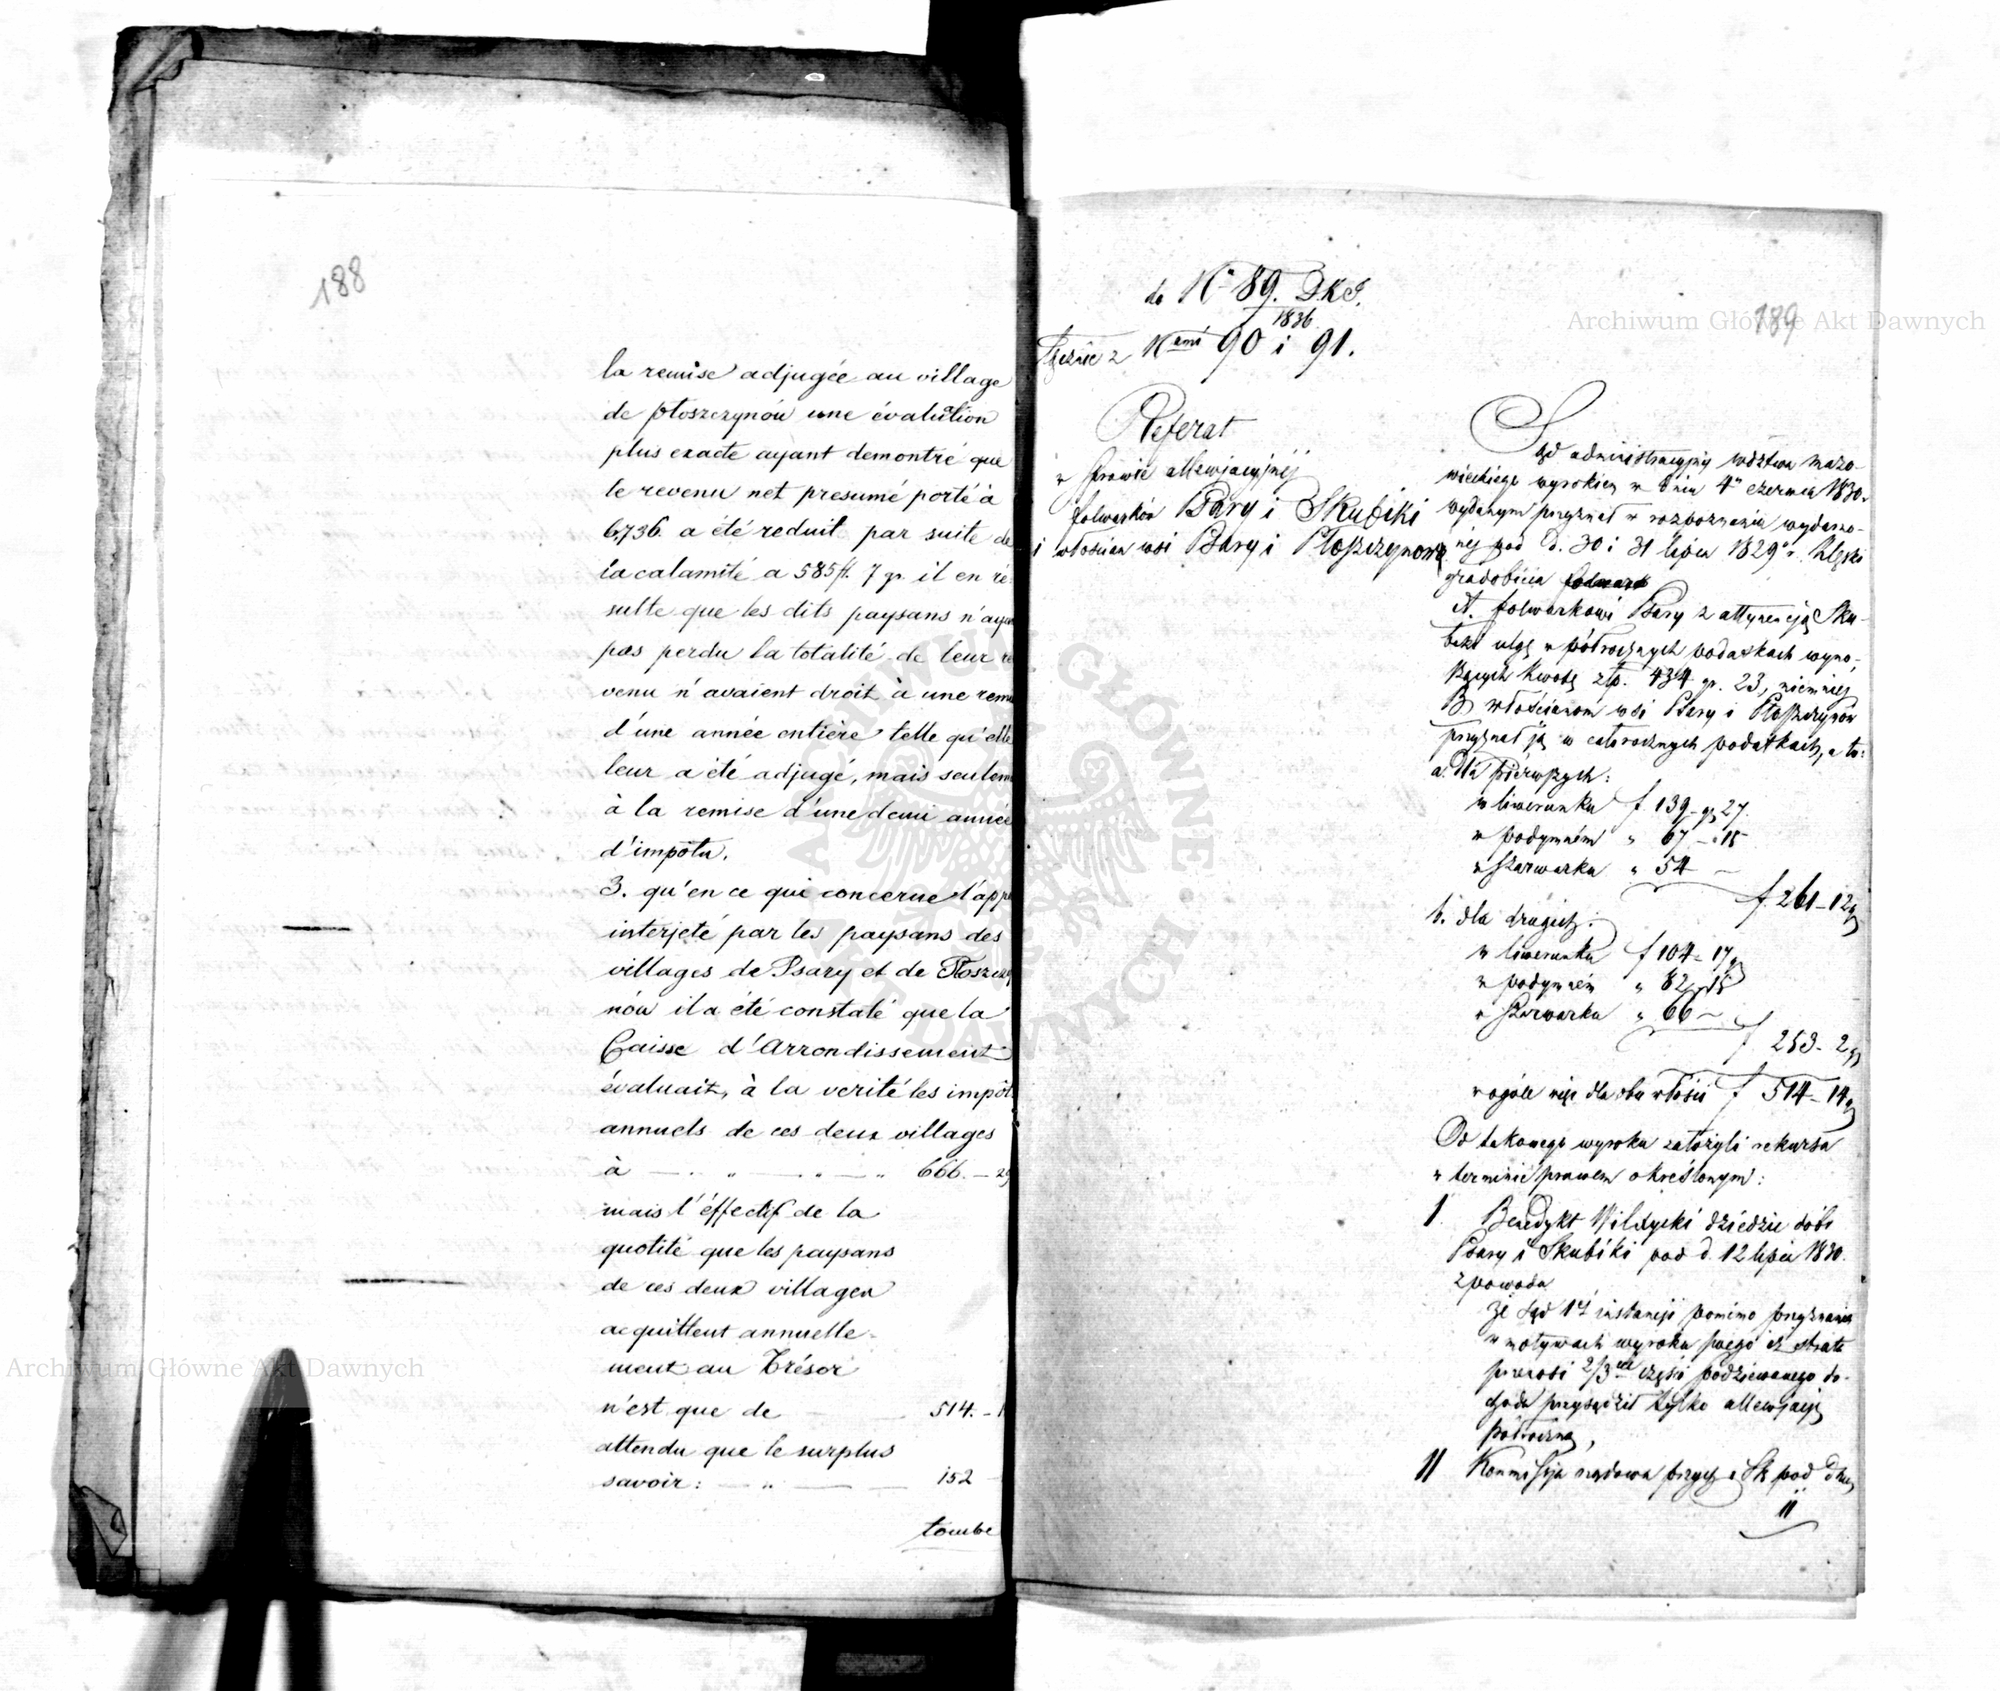 188
la remise adjugée au village
de Ploszczynów une évalution
plus exacte ayant demontré que
le revenu net presumé porté à
6,736. a été reduit par suite de
la calamité a 585 fl. 7 gr. il en ré-
sulte que les dits paysans n'ayan
pas perdu la totalité de leur re
venu n'avaient droit à une remi
d'une année entière telle qu'elle
leur a été adjugé, mais seulem
à la remise d'une demi année
d'impôts.
3. qu'en ce qui concerne l'appe
interjeté par les paysans des
villages de Psary et de Ploszczy
nów il a été constaté que la
Caisse d'Arrondissement
évaluait, à la verité les impôt
annuels de ces deux villages
à — „ — „ — „ 666. — 29
mais l'éffectif de la
quotité que les paysans
de ces deux villages
acquittent annuelle-
ment au Trésor
n'est que de — 514. — 1
attendu que le surplus
savoir: — „ — — 152
tombe
189
do No 89. D.K.S.
1836
Łącznie z Nrami 90 i 91.
Referat
w sprawie allewiacyjnéj
folwarków Psary i Skubiki
i włościan wsi Psary i Płoszczynowa
Sąd administracyjny wdztwa mazo-
wieckiego wyrokiem w dniu 4n czerwca 1830 r.
wydanym przyznał w rozpoznaniu wydarzo-
néj pod d. 30 i 31 lipca 1829 r. klęski
gradobicia
A. folwarkowi Psary z attynencją Sku-
biki ulgę w półrocznych podatkach wyno-
szących kwotę złp. 434 gr. 23, niemniéj
B włościanom wsi Psary i Płoszczynów
przyznał ją w całorocznych podatkach, a to:
a. dla pierwszych:
w liwerunku f. 139 — gr 27.
w podymném „ 67 — „ 15
w szarwarku „ 54 —
f. 261 — 12 gr
b. dla drugich:
w liwerunku f 104 — 17 gr
w podymném „ 82 — 15
w szarwarku „ 66 —
f 253 — 2 gr
w ogóle więc dla obu włości f 514 — 14 gr
Od takowego wyroku założyli rekursa
w terminie prawem określonym:
I. Benedykt Wilxycki dziedzic dóbr
Psary i Skubiki pod d. 12 lipca 1830.
z powodu
że Sąd 1éj instancji pomimo przyznania
w motywach wyroku swego iż strata
przenosi 2/3cie części spodziewanego do-
chodu przysądził tylko allewjację
półroczną,
II Kommissja rządowa przych: i Sk pod dniem
11